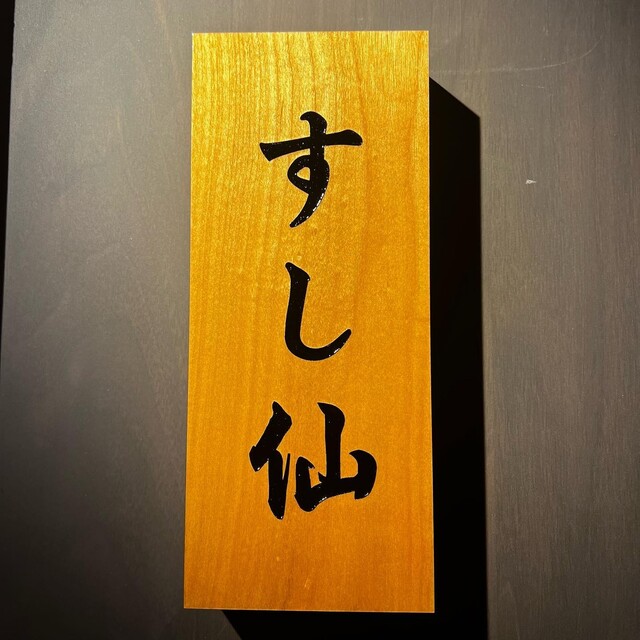 すし仙